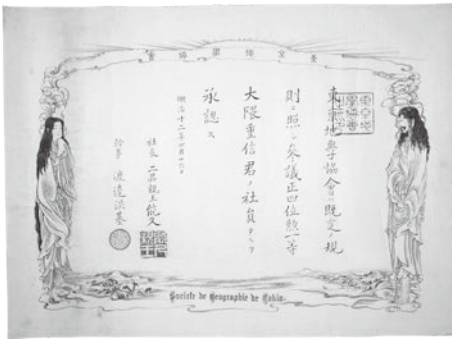 東京地學協會ノ既定ノ規
則ニ照シ參議正四位勲一等
大隈重信君ノ社員タルヲ
承認ス
明治十二年四月
社長 二品親王能久
幹事 渡邊洪基
Societe de Geographie de Tokio.